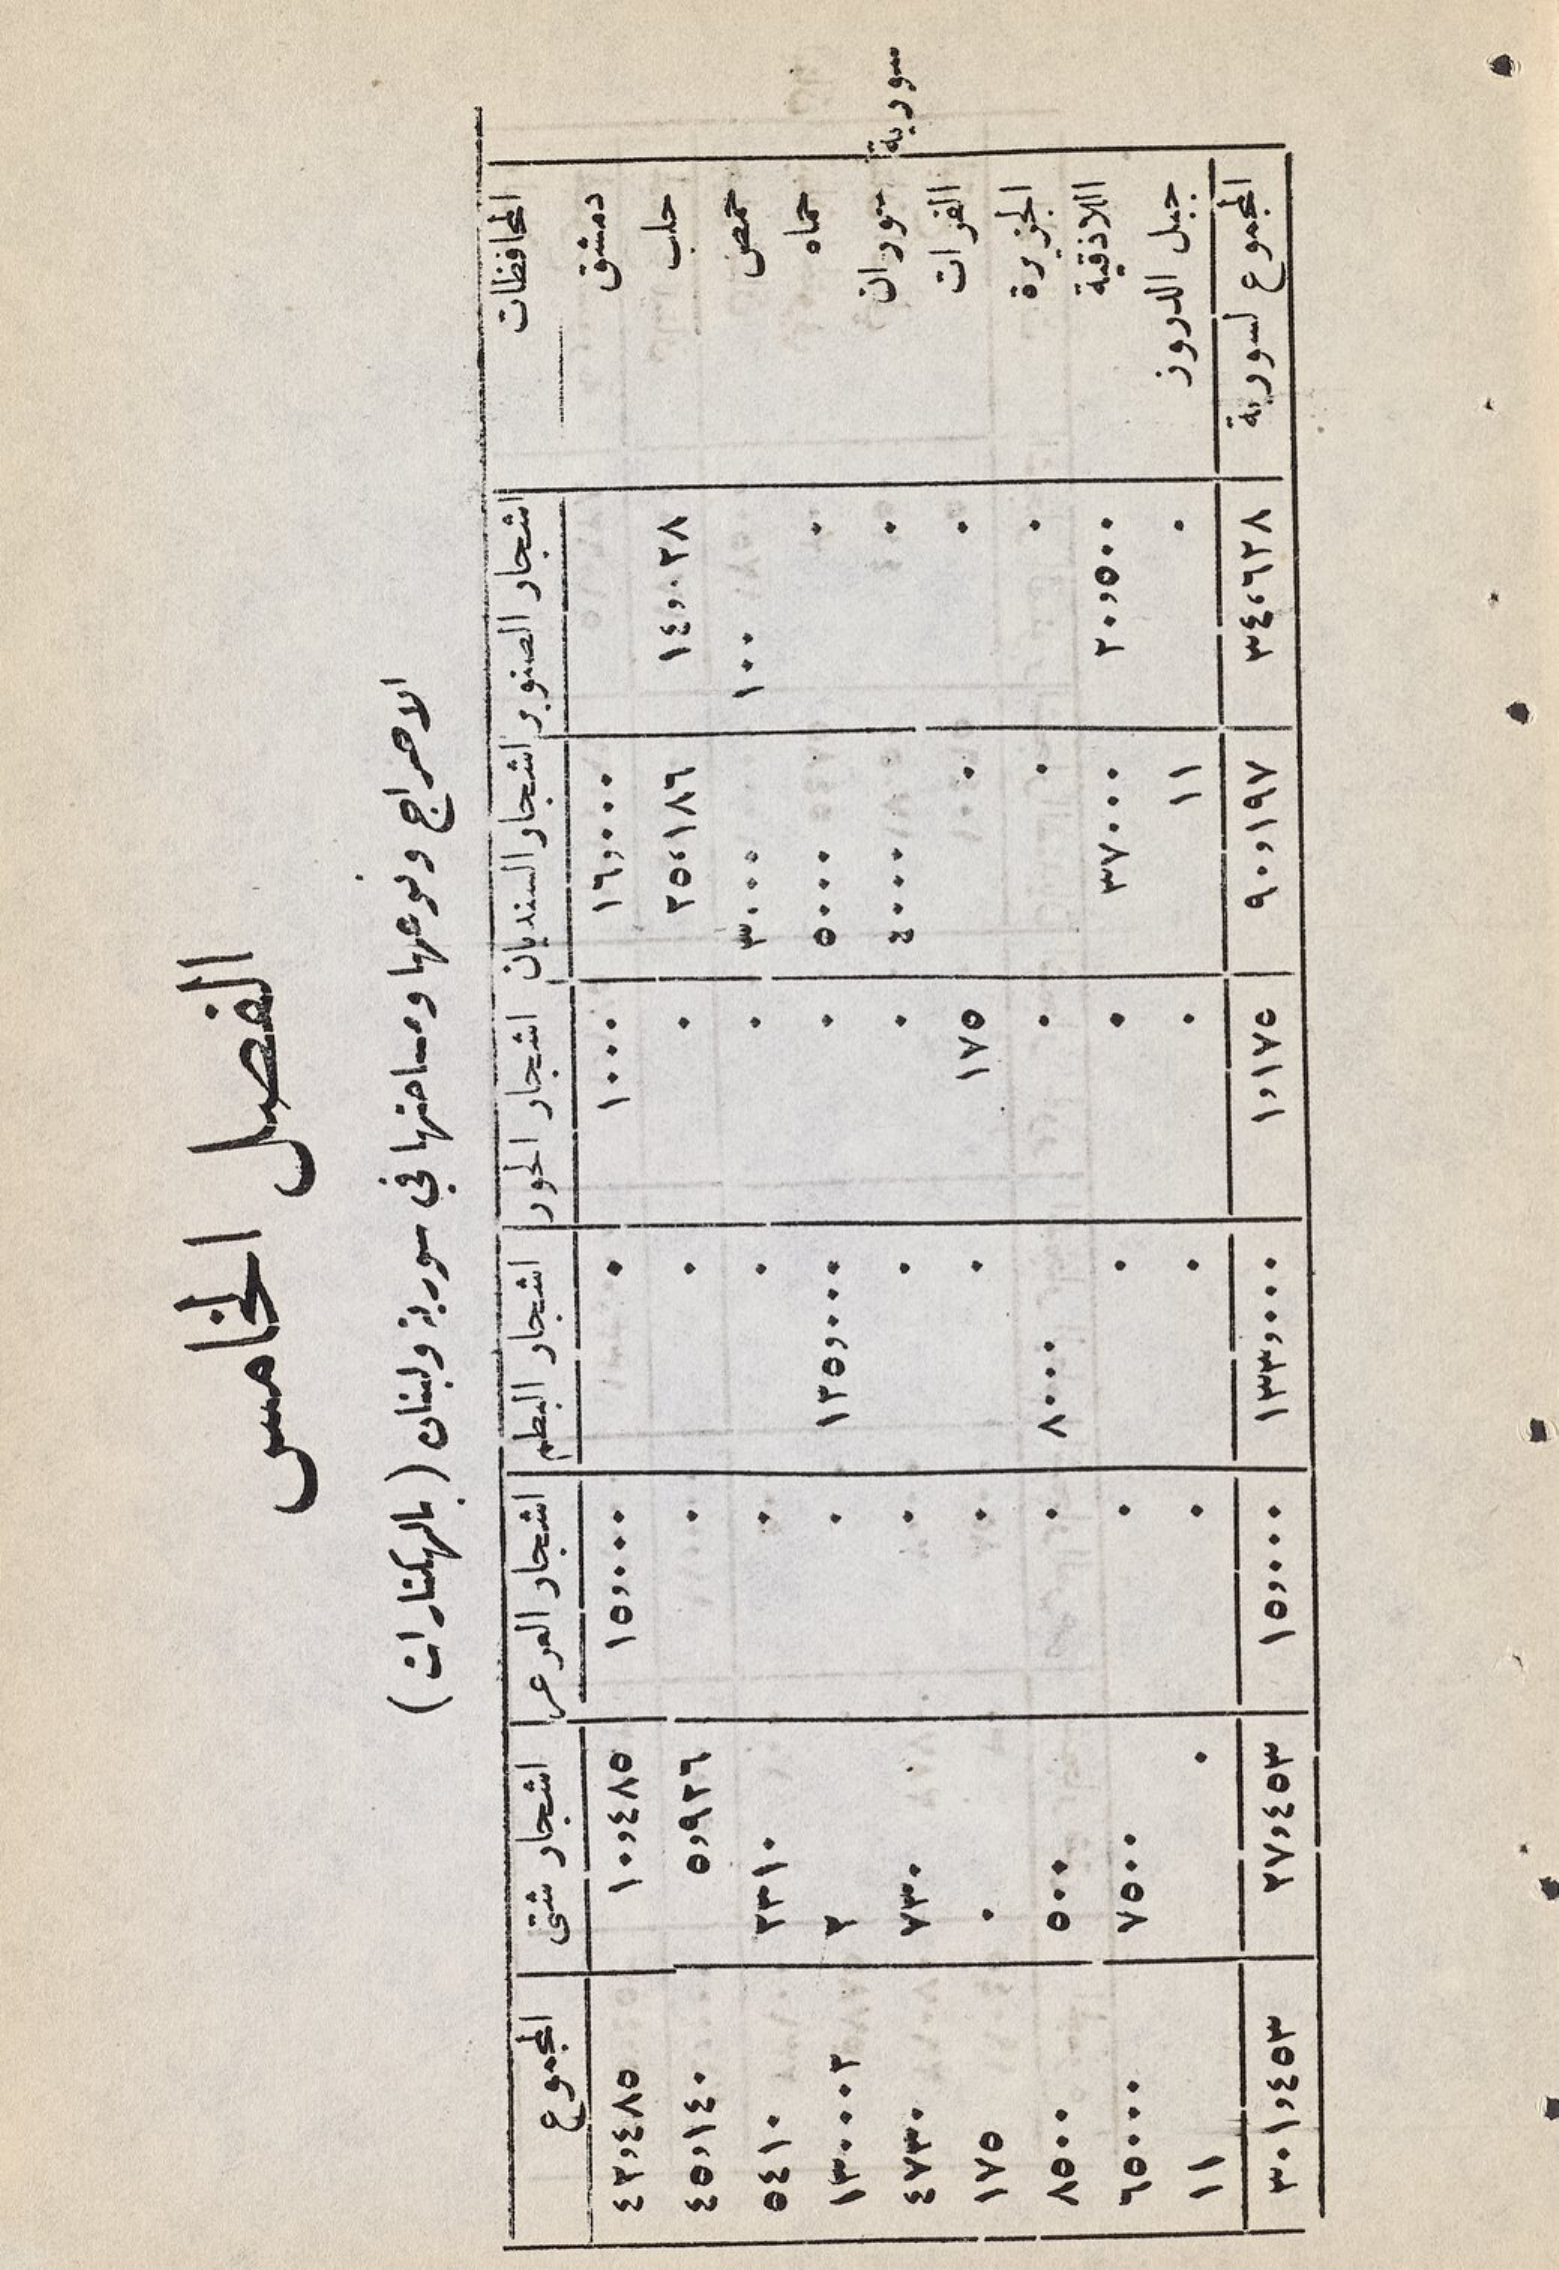 الفصل الخامس
الاحراج ونوعها ومساحتها في سورية ولبنان (بالهكتارات)
المحافظات اشجار الصنوبر اشجار السنديان اشجار الحور اشجار البطم اشجار العرعر اشجار شتى المجموع
دمشق ١٦,٠٠٠ ١٠٠٠ ٠ ١٥,٠٠٠ ١٠,٤٨٥ ٤٢,٤٨٥
حلب ١٤,٠٢٨ ٢٥,١٨٦ ٠ ٠ ٠ ٥,٩٢٦ ٤٥,١٤٠
حمص ١٠٠ ٣٠٠٠ ٠ ٠ ٠ ٢٣١٠ ٥٤١٠
حماه ٠ ٥٠٠٠ ٠ ١٢٥,٠٠٠ ٠ ٢ ١٣٠٠٠٢
سورية
حوران ٠ ٤٠٠٠ ٠ ٠ ٠ ٧٣٠ ٤٧٣٠
الفرات ٠ ٠ ١٧٥ ٠ ٠ ٠ ١٧٥
الجزيرة ٠ ٠ ٠ ٨٠٠٠ ٠ ٥٠٠ ٨٥٠٠
اللاذقية ٢٠,٥٠٠ ٣٧٠٠٠ ٠ ٠ ٠ ٧٥٠٠ ٦٥٠٠٠
جبل الدروز ٠ ١١ ٠ ٠ ٠ ٠ ١١
المجموع لسورية ٣٤,٦٢٨ ٩٠,١٩٧ ١,١٧٥ ١٣٣,٠٠٠ ١٥,٠٠٠ ٢٧,٤٥٣ ٣٠١,٤٥٣